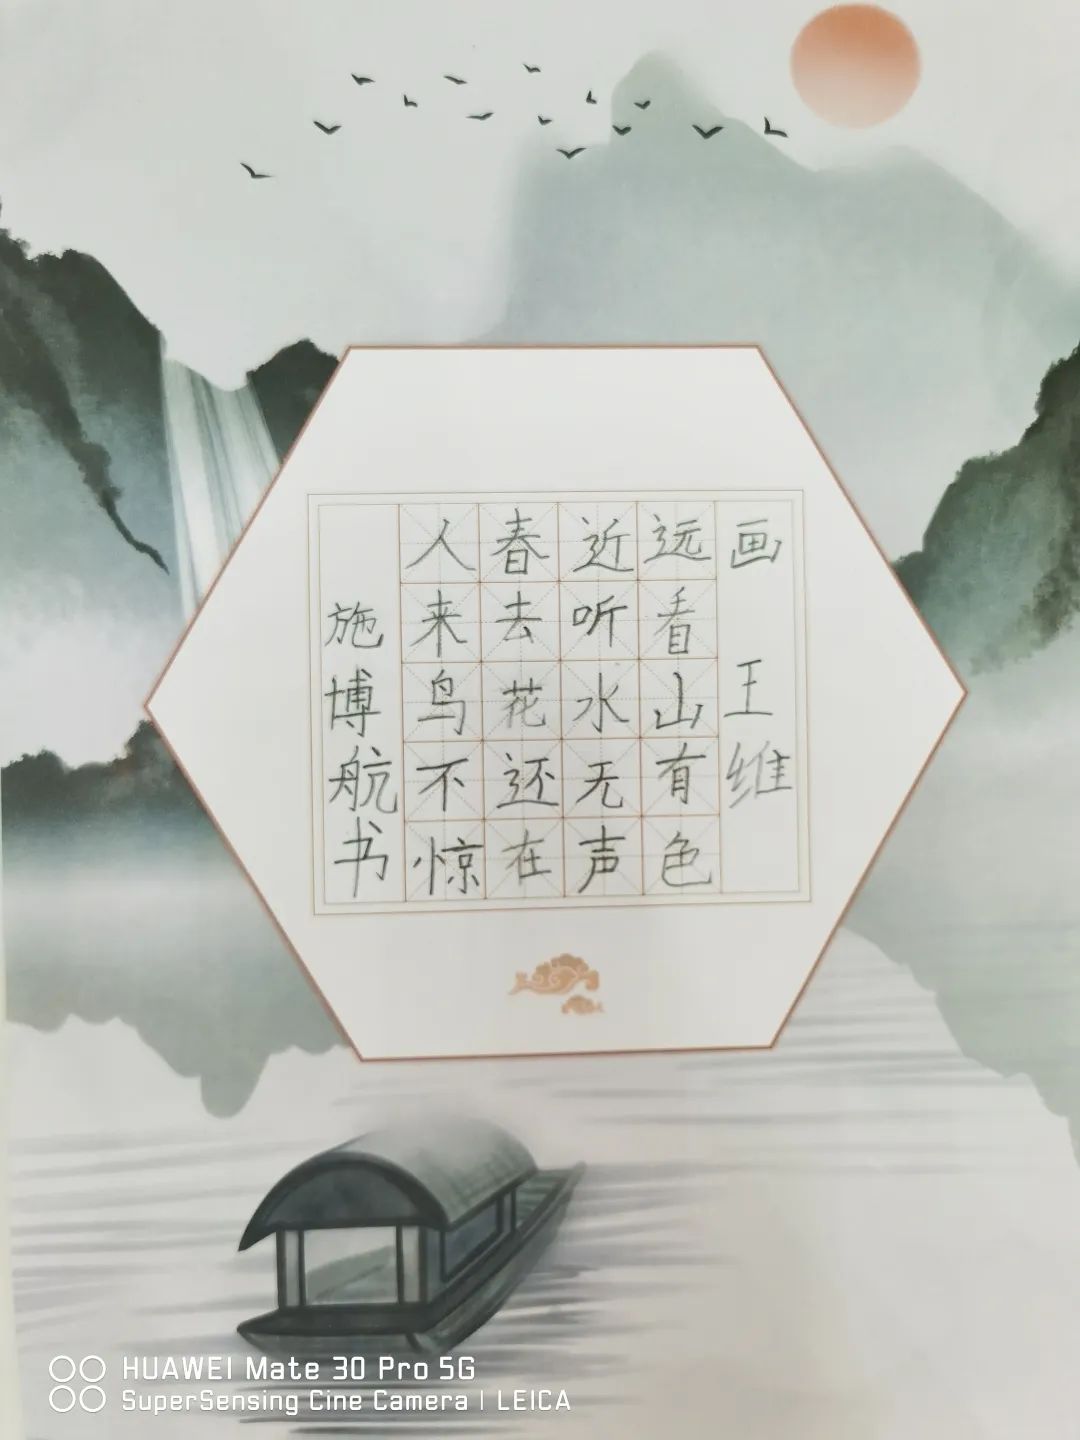 画 王维
远看山有色
近听水无声
春去花还在
人来鸟不惊
施博航书
HUAWEI Mate 30 Pro 5G
SuperSensing Cine Camera | LEICA